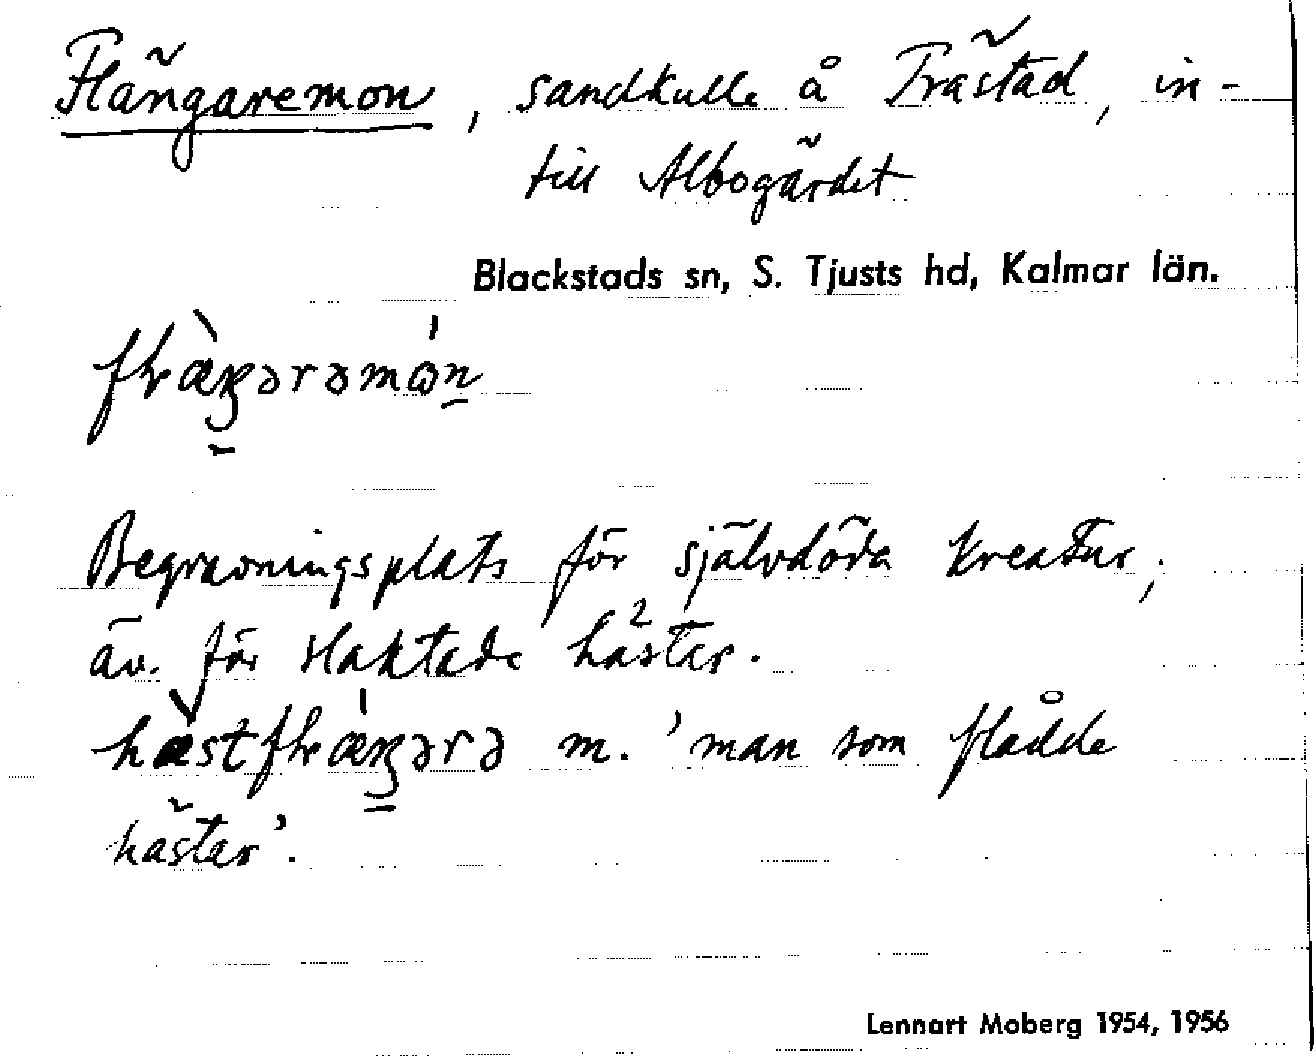 Flängaremon, sandkulle å Trästad, in-
till Albogärdet
Blackstads sn, S. Tjusts hd, Kalmar län.
Begravningsplats för självdöda kreatur,
äv. för slaktade hästar.
m. 'man som flådde
hästar'.
Lennart Moberg 1954, 1956